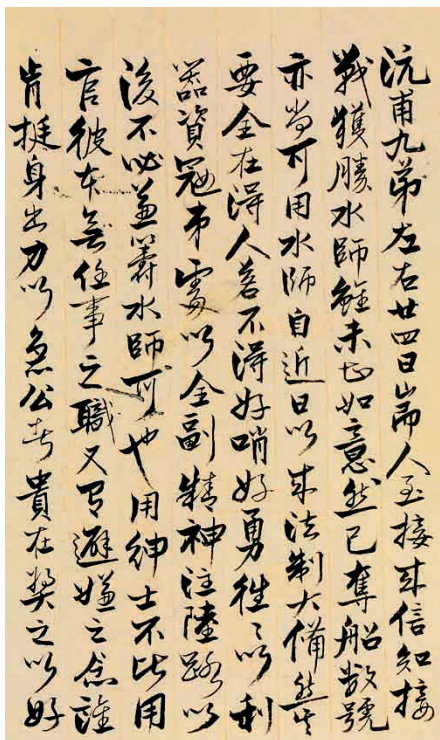 沅甫九弟左右廿四日專人至接來信知接
戰獲勝水師雖未甚如意然已奪船數號
亦尚可用水師自近日以來法制大備然其
要全在得人若不得好哨好勇往〻以利
器資寇弟處以全副精神注陸路以
後不必兼籌水師可也用紳士不比用
官彼本無任事之職又有避嫌之念誰
肯挺身出力以急公者貴在獎之以好